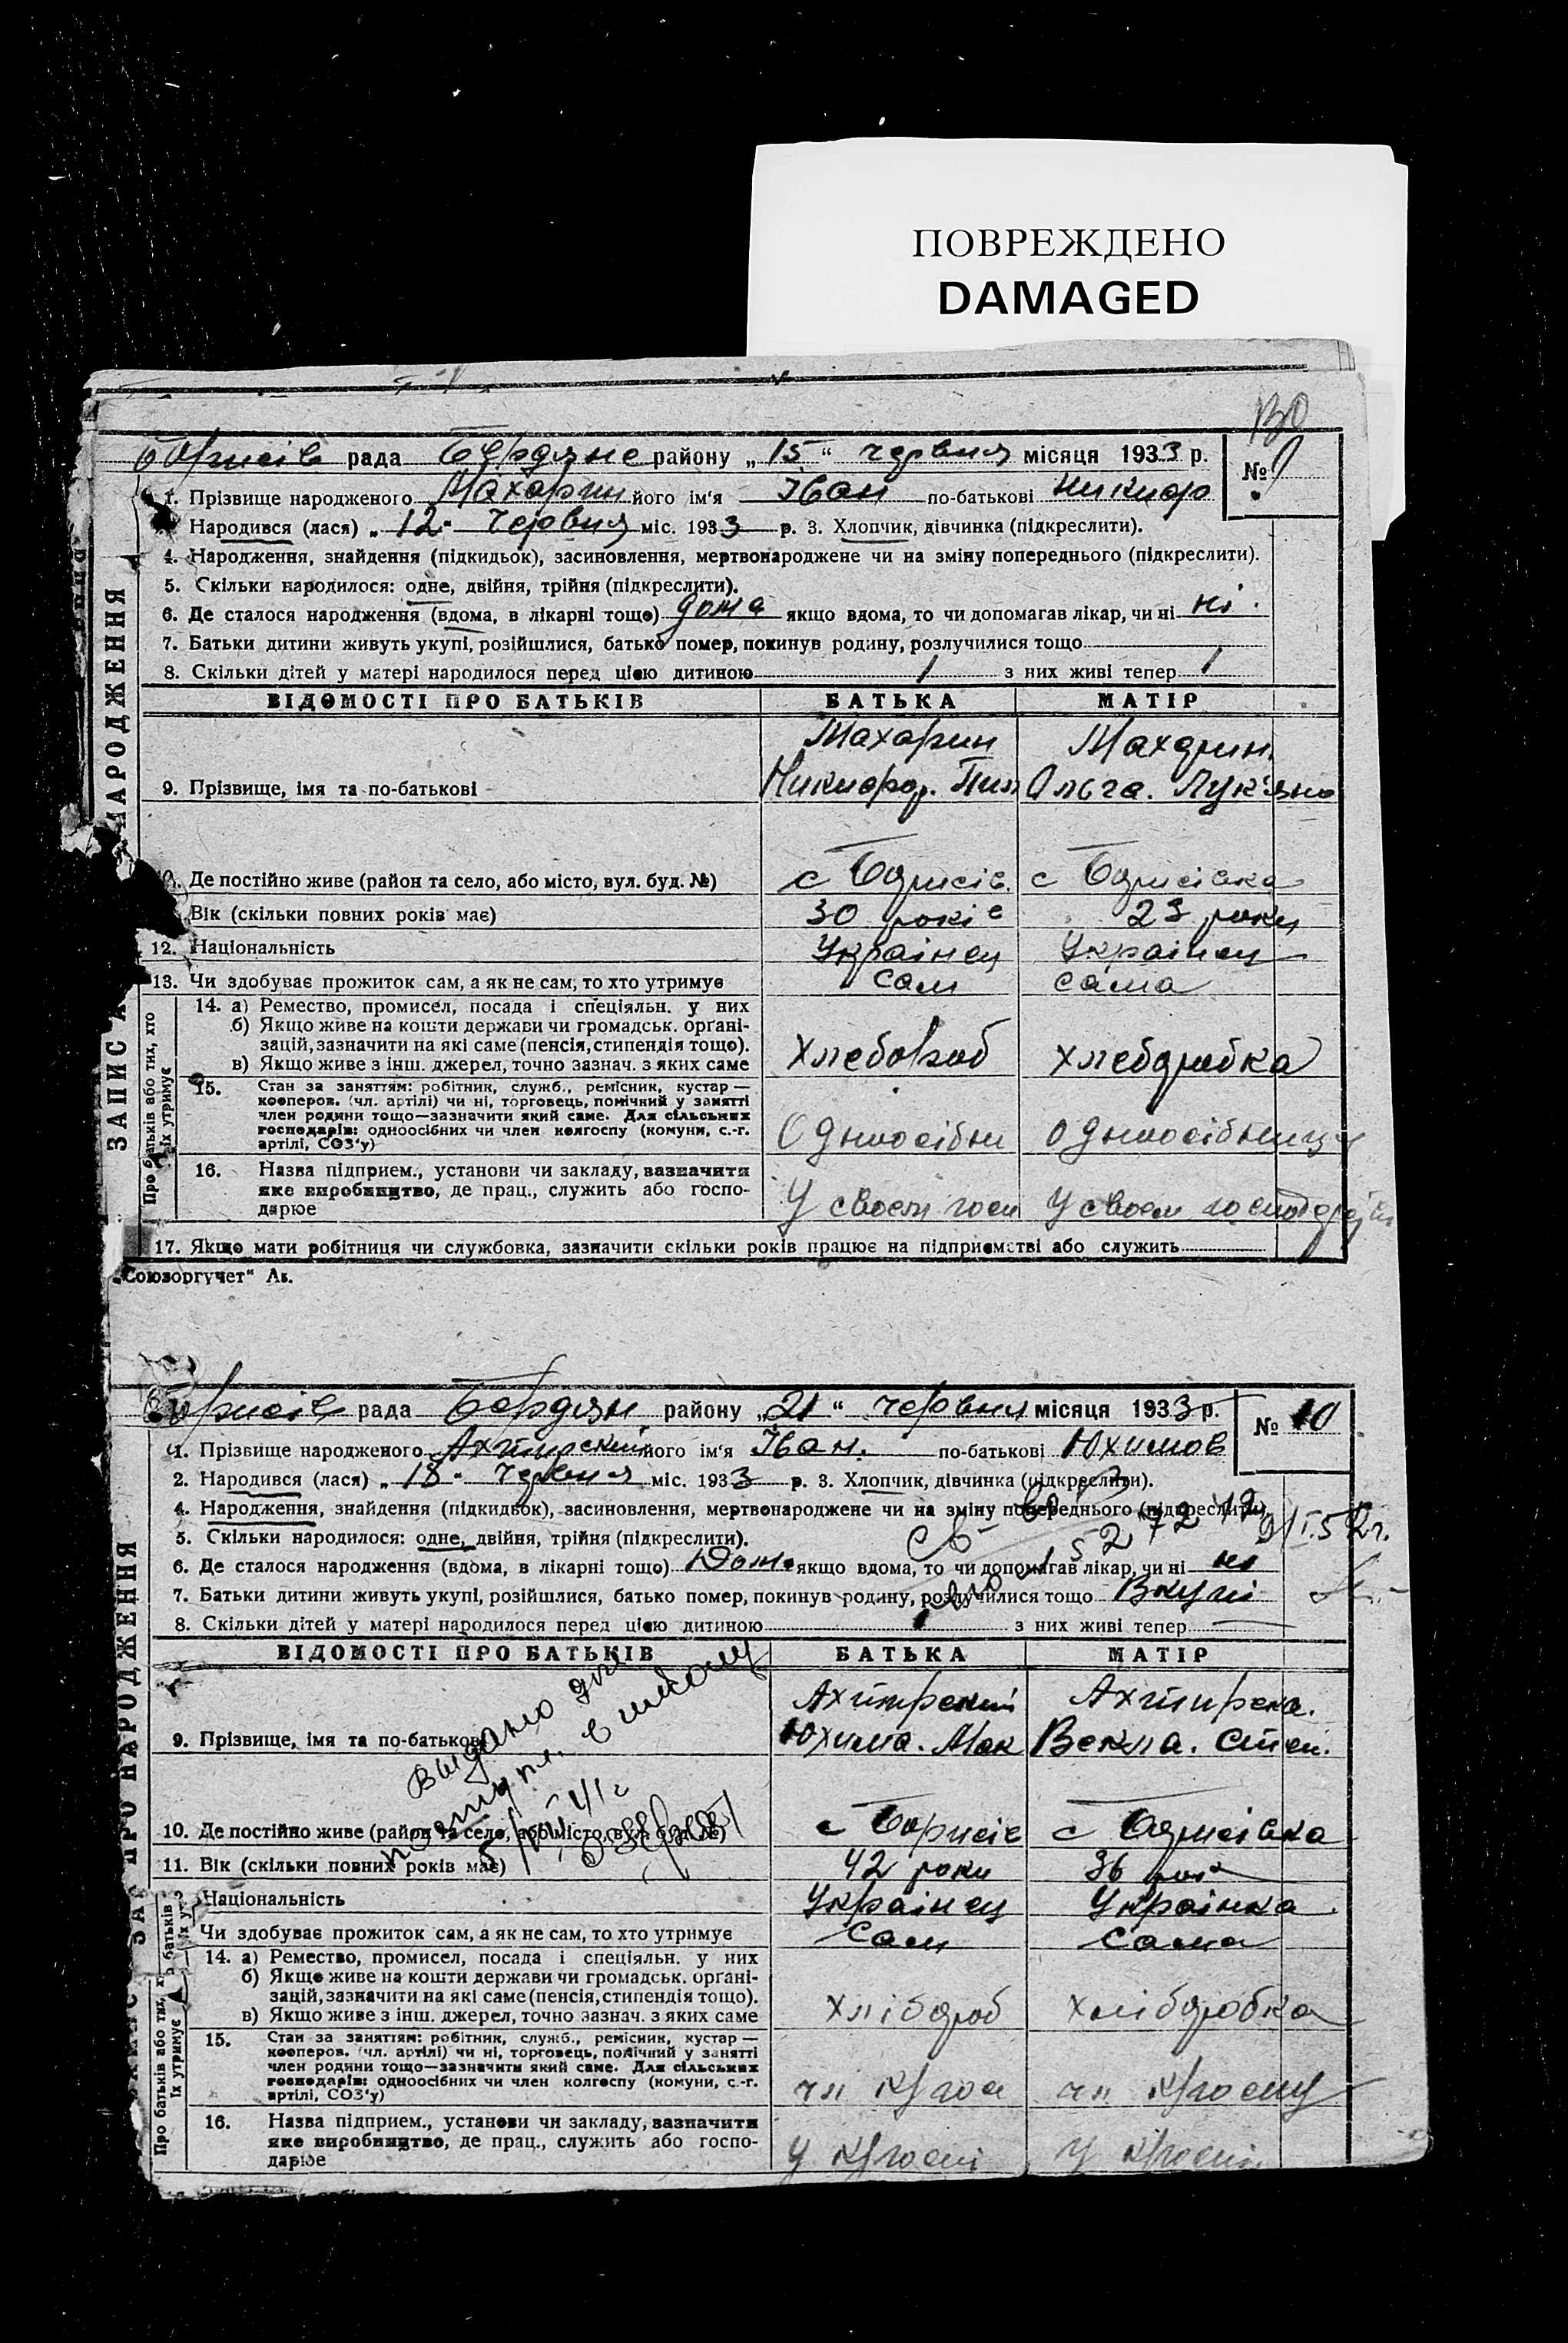 ПОВРЕЖДЕНО
DAMAGED
130
Борисів рада Бердянс району „ 15 “ червня місяця 1933 р.
№ 9
1. Прізвище народженого Махарин його ім'я Іван по-батькові Никифор
Народився (лася) „ 12 " червня міс. 1933 р. 3. Хлопчик, дівчинка (підкреслити).
4. Народження, знайдення (підкидьок), засиновлення, мертвонароджене чи на зміну попереднього (підкреслити).
5. Скільки народилося: одне, двійня, трійня (підкреслити).
6. Де сталося народження (вдома, в лікарні тощо) дома якщо вдома, то чи допомагав лікар, чи ні ні.
7. Батьки дитини живуть укупі, розійшлися, батько помер, покинув родину, розлучилися тощо
8. Скільки дітей у матері народилося перед цією дитиною 1 з них живі тепер 1
ВІДОМОСТІ ПРО БАТЬКІВ БАТЬКА МАТІР
Махарин Махарин.
9. Прізвище, імя та по-батькові Никифор. Пил Ольга. Лук'яно
10. Де постійно живе (район та село, або місто, вул. буд. №) с Борисів. с Борисівка
Вік (скільки повних років має) 30 років 23 роки
12. Національність Украінец Украінец
13. Чи здобуває прожиток сам, а як не сам, то хто утримує сам сама
14. а) Ремество, промисел, посада і спеціяльн. у них
б) Якщо живе на кошти держави чи громадськ. органі-
зацій, зазначити на які саме (пенсія, стипендія тощо).
в) Якщо живе з інш. джерел, точно зазнач. з яких саме хлебороб хлеборобка
15. Стан за заняттям: робітник, служб., ремісник, кустар —
кооперов. (чл. артілі) чи ні, торговець, помічний у занятті
член родини тощо—зазначити який саме. Для сільських
господарів: одноосібних чи член колгоспу (комуни, с.-г.
артілі, СОЗ'у) Одноосібни одноосібниця
16. Назва підприєм., установи чи закладу, зазначити
яке виробництво, де прац., служить або госпо-
дарює У своем госп У своем господарстві
17. Якщо мати робітниця чи службовка, зазначити скільки років працює на підприємстві або служить
„Союзоргучет“
ЗАПИС НАРОДЖЕННЯ
Про батьків або тих, хто їх утримує
Борисів рада Бердян району „ 21 “ червня місяця 1933 р.
№ 10
1. Прізвище народженого Ахтирский його ім'я Іван. по-батькові Юхимов
2. Народився (лася) „ 18 " червня міс. 1933 р. 3. Хлопчик, дівчинка (підкреслити).
4. Народження, знайдення (підкидьок), засиновлення, мертвонароджене чи на зміну попереднього (підкреслити)
5. Скільки народилося: одне, двійня, трійня (підкреслити).
6. Де сталося народження (вдома, в лікарні тощо) Дома якщо вдома, то чи допомагав лікар, чи ні ні
7. Батьки дитини живуть укупі, розійшлися, батько помер, покинув родину, розлучилися тощо Вкупі
8. Скільки дітей у матері народилося перед цією дитиною з них живі тепер
ВІДОМОСТІ ПРО БАТЬКІВ БАТЬКА МАТІР
Выдано для
поступл. в школу
Ахтирский Ахтирска.
9. Прізвище, імя та по-батькові Юхима. Мак Векла. Степ.
10. Де постійно живе (район та село, або місто, вул. буд. №) с Борисів с Борисівка
11. Вік (скільки повних років має) 42 роки 36 рок
Національність Украінец Украінка
Чи здобуває прожиток сам, а як не сам, то хто утримує Сам Сама
14. а) Ремество, промисел, посада і спеціяльн. у них
б) Якщо живе на кошти держави чи громадськ. органі-
зацій, зазначити на які саме (пенсія, стипендія тощо).
в) Якщо живе з інш. джерел, точно зазнач. з яких саме хлібороб хліборобка
15. Стан за заняттям: робітник, служб., ремісник, кустар —
кооперов. (чл. артілі) чи ні, торговець, помічний у занятті
член родини тощо—зазначити який саме. Для сільських
господарів: одноосібних чи член колгоспу (комуни, с.-г.
артілі, СОЗ'у) чл к/госп чл. к/госпу
16. Назва підприєм., установи чи закладу, зазначити
яке виробництво, де прац., служить або госпо-
дарює у к/госпі у к/госпі.
ПРО НАРОДЖЕННЯ
Про батьків або тих, їх утримує